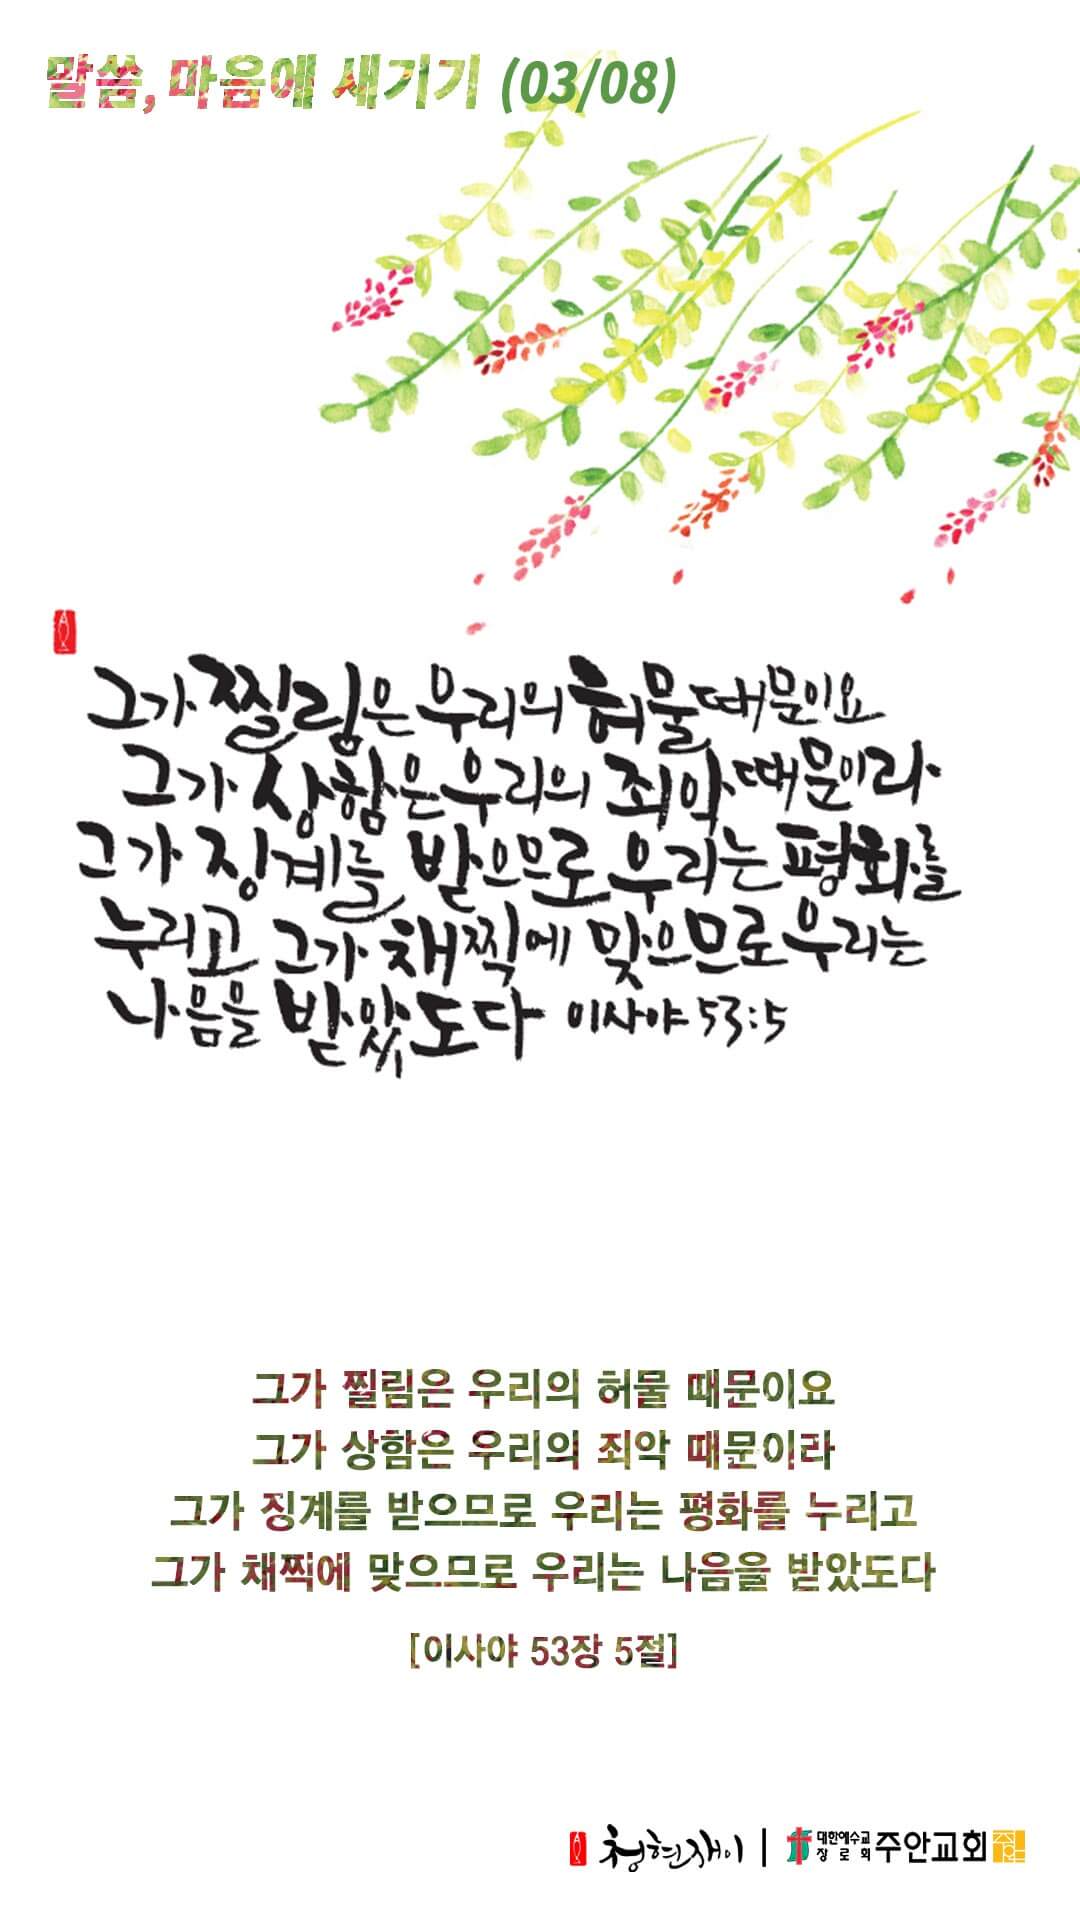 말씀, 마음에 새기기 (03/08)
그가 찔림은 우리의 허물 때문이요
그가 상함은 우리의 죄악 때문이라
그가 징계를 받으므로 우리는 평화를
누리고 그가 채찍에 맞으므로 우리는
나음을 받았도다 이사야 53:5
그가 찔림은 우리의 허물 때문이요
그가 상함은 우리의 죄악 때문이라
그가 징계를 받으므로 우리는 평화를 누리고
그가 채찍에 맞으므로 우리는 나음을 받았도다
[이사야 53장 5절]
청현재이 | 대한예수교 장로회 주안교회